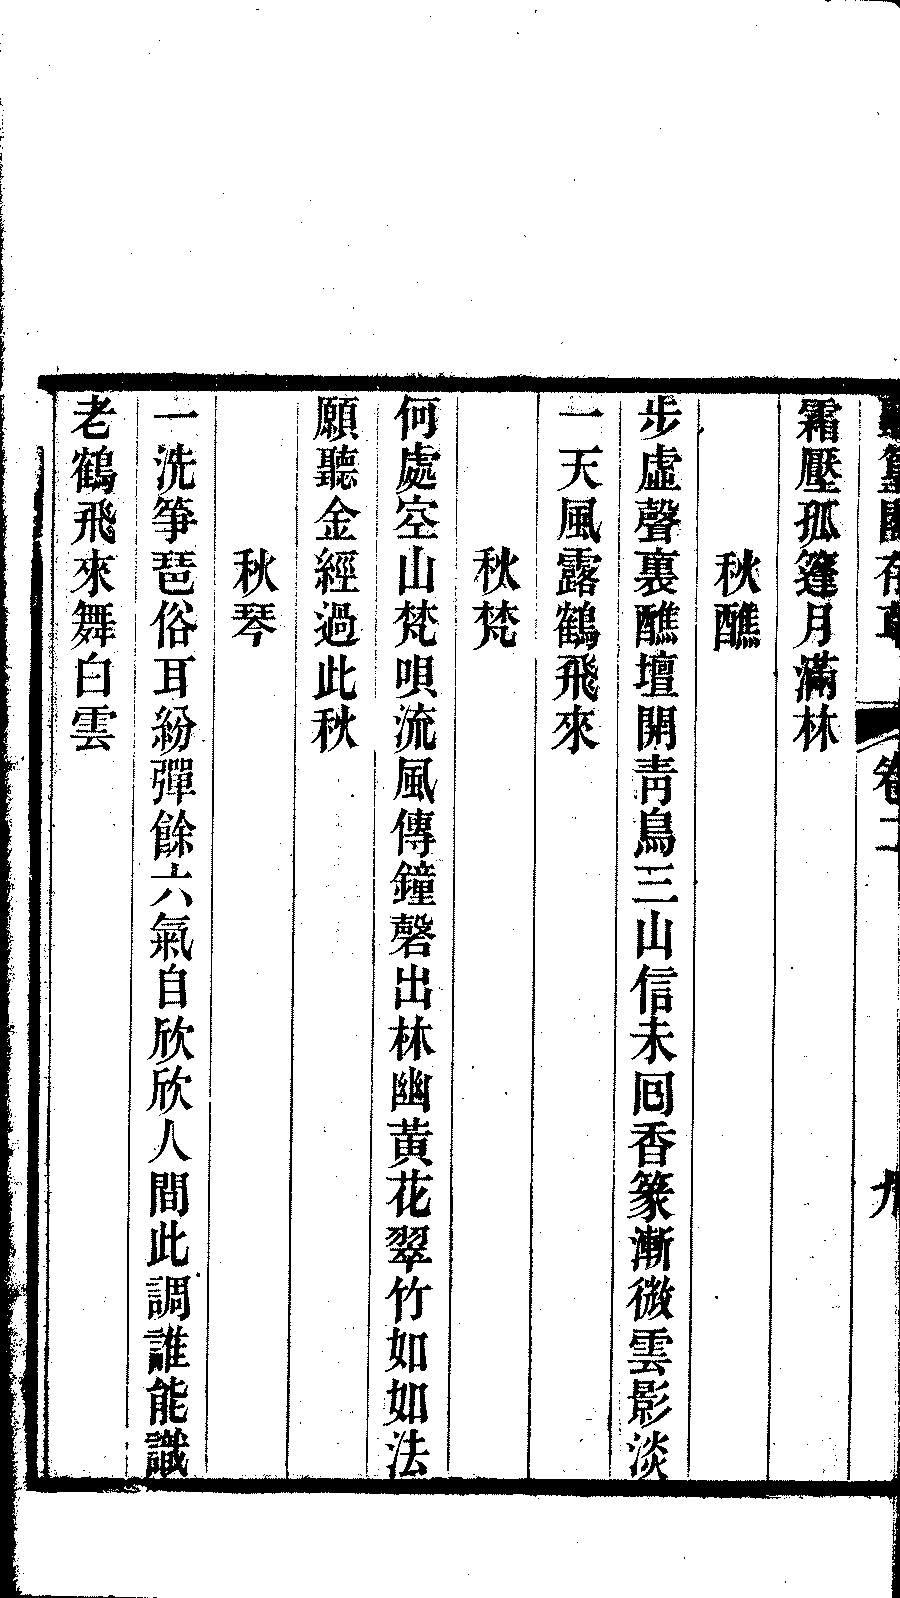 卷二
霜壓孤篷月滿林
秋醮
步虛聲裏醮壇開靑鳥三山信未回香篆漸微雲影淡
一天風露鶴飛來
秋梵
何處空山梵唄流風傳鐘磬出林幽黃花翠竹如如法
願聽金經過此秋
秋琴
一洗箏琶俗耳紛彈餘六氣自欣欣人間此調誰能識
老鶴飛來舞白雲